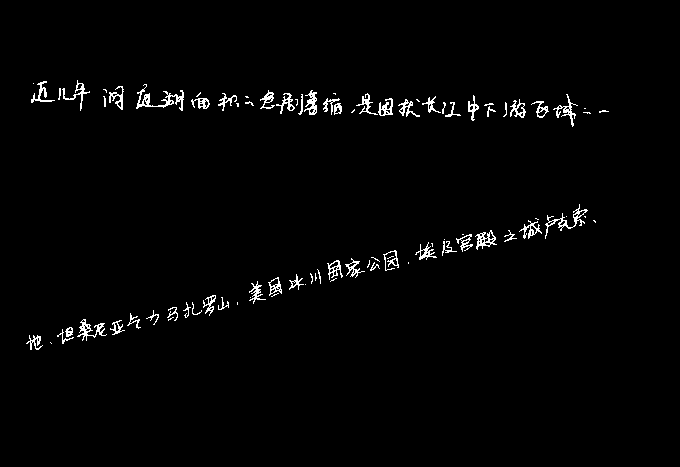 近几年洞庭湖面积急剧萎缩,是因扰长江中下游区域
地、坦桑尼亚乞力马扎罗山、美国冰川国家公园、埃及宫殿之城卢克索、